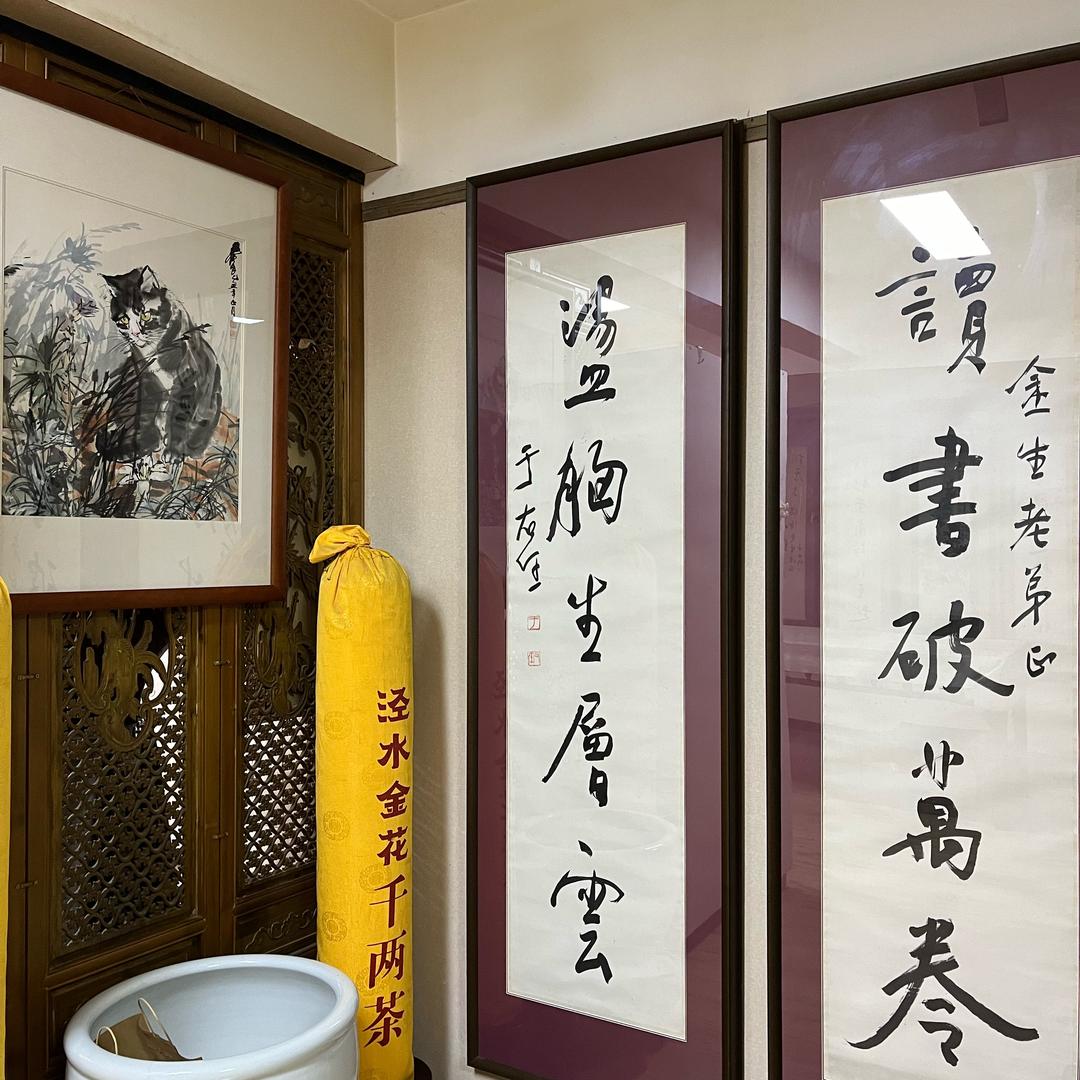 金生老弟正
讀書破萬卷
盪胸生層雲
于右任
泾水金花千两茶